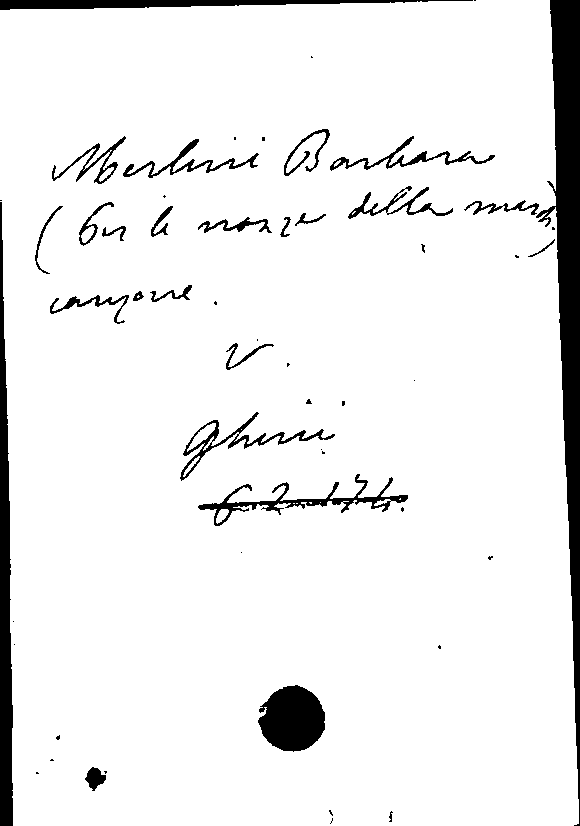 Merlini Barbara
(Per le nozze della march.)
canzone.
V.
Ghini
6 2 174.